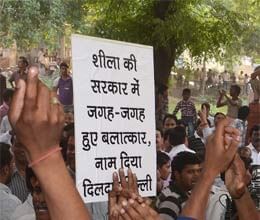 शीला की
सरकार में
जगह-जगह
हुए बलात्कार,
नाम दिया